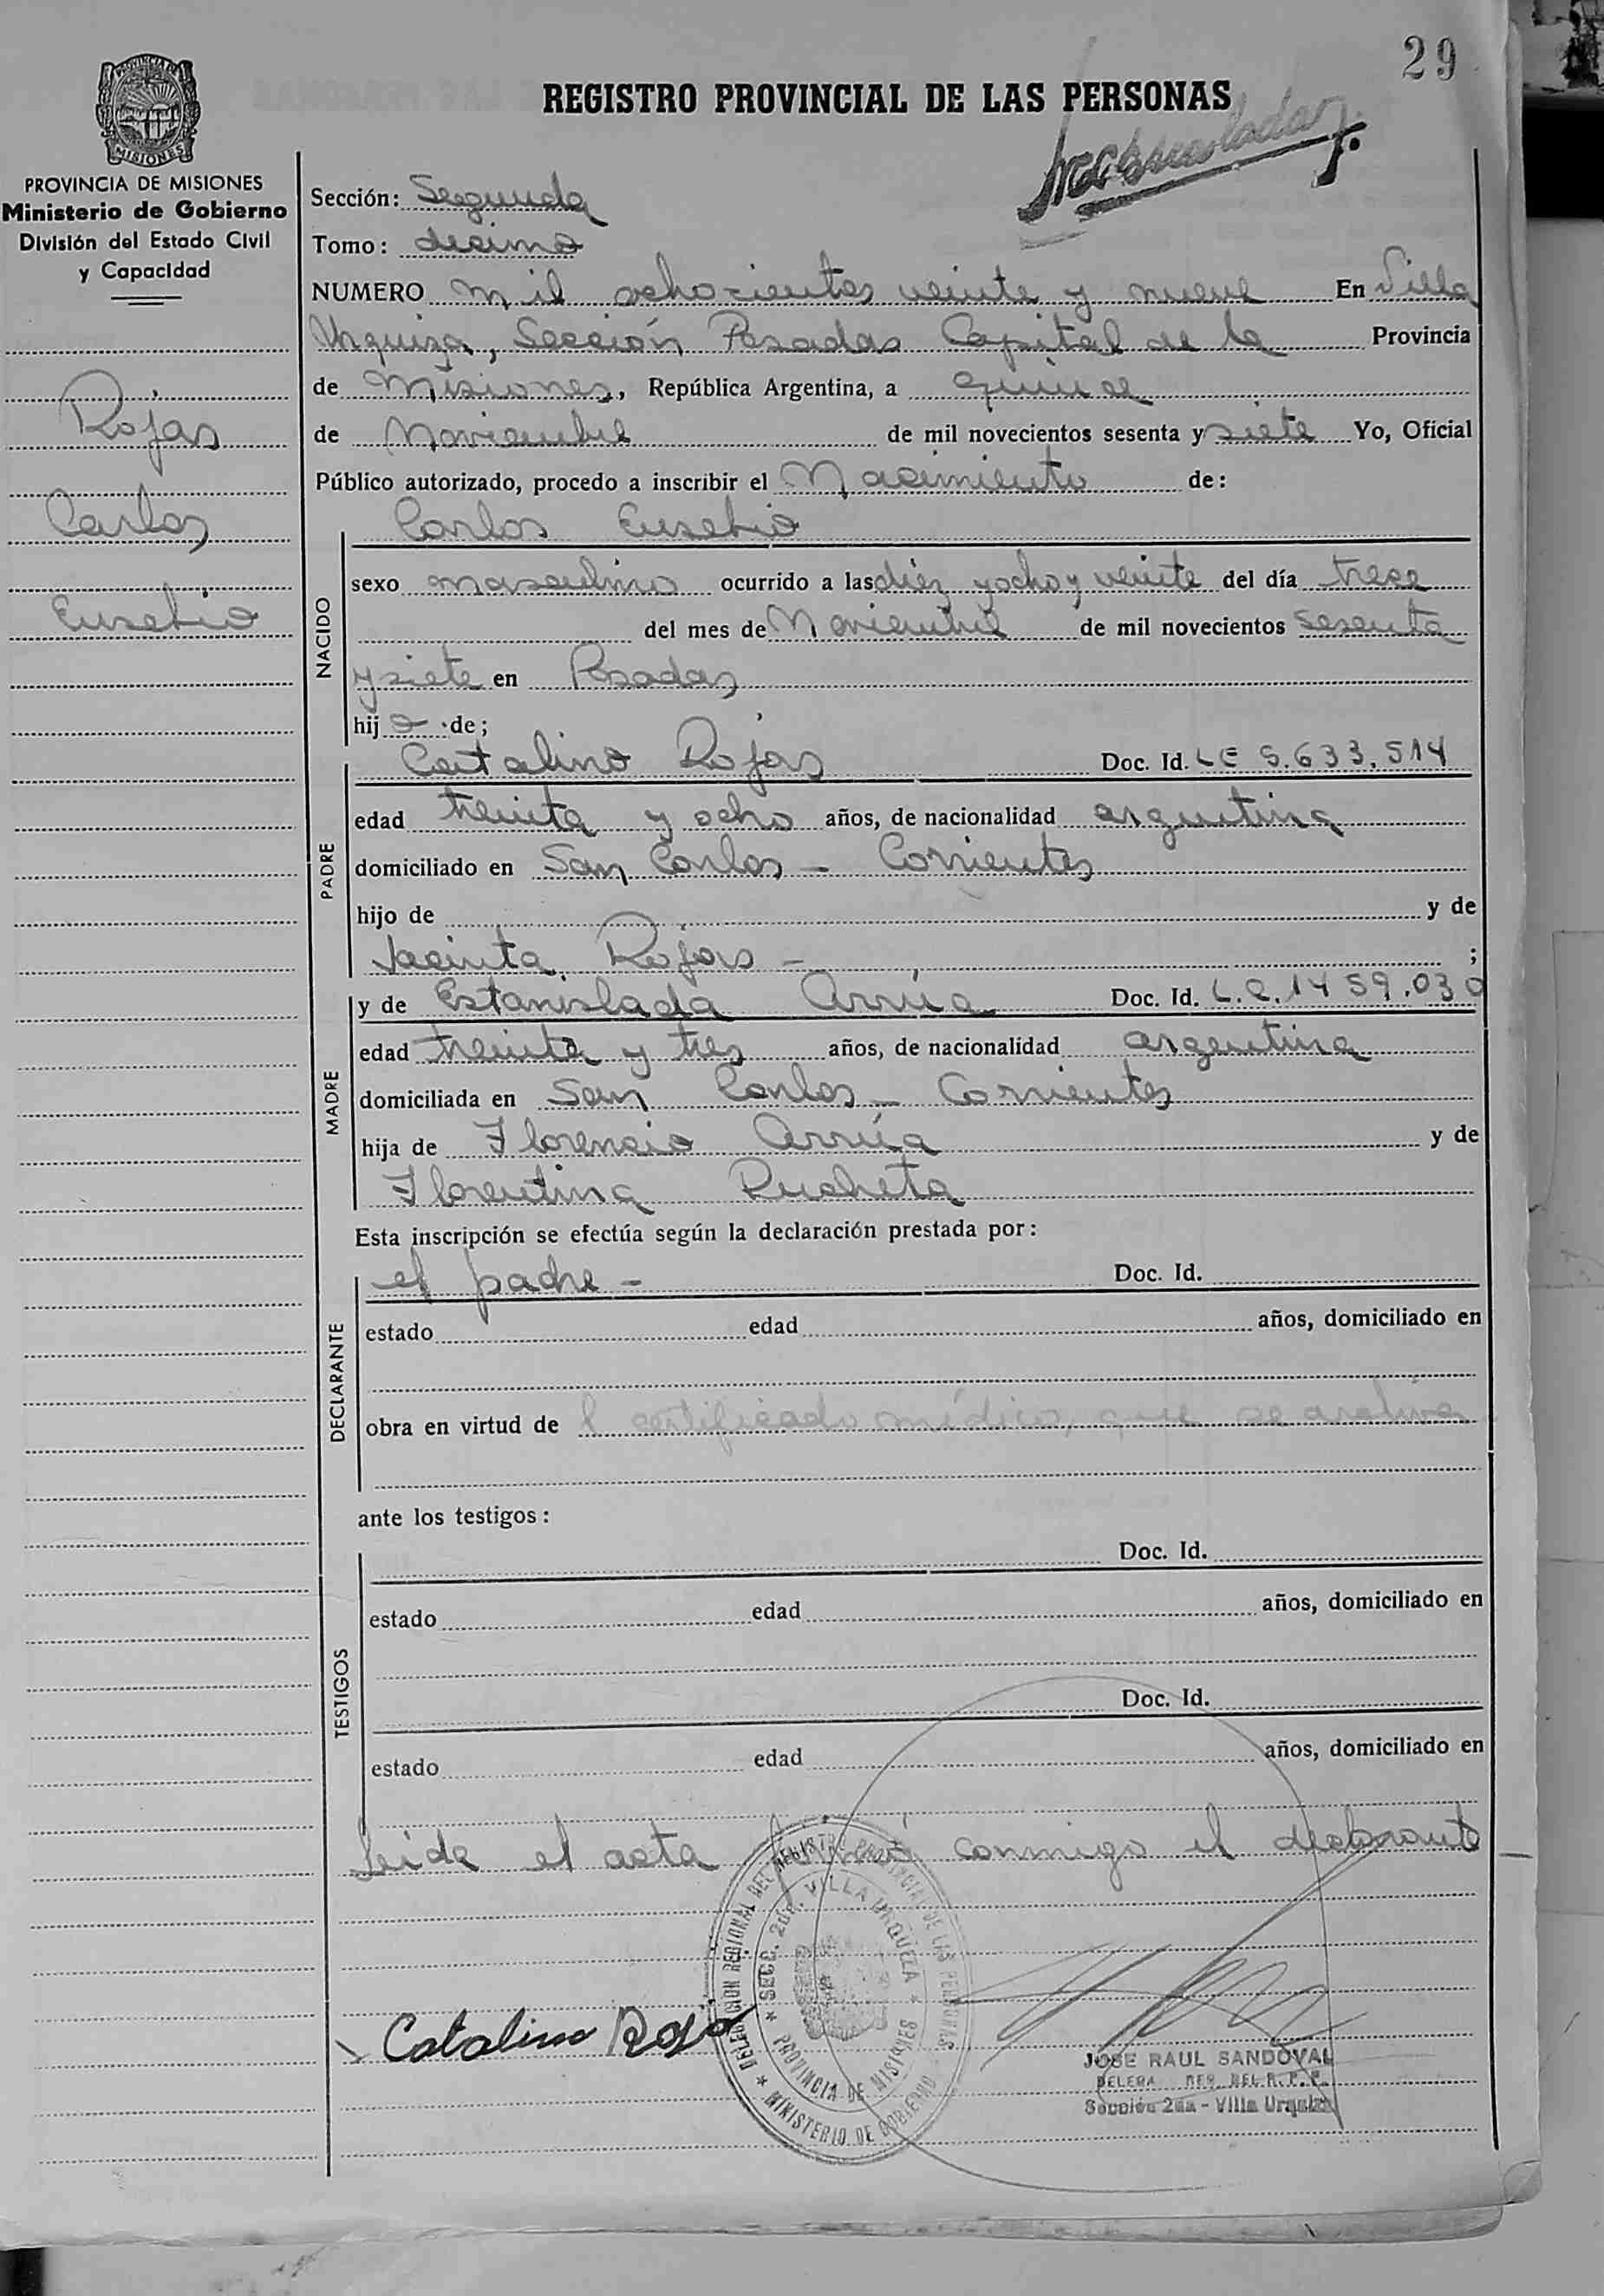 29
REGISTRO PROVINCIAL DE LAS PERSONAS
PROVINCIA DE MISIONES
MISIONES
PROVINCIA DE MISIONES
Ministerio de Gobierno
División del Estado Civil
y Capacidad
Rojas
Carlos
Eusebio
Sección: Segunda
Tomo: decimo
NUMERO mil ochocientos veinte y nueve En Villa
Urquiza, Sección Posadas Capital de la Provincia
de Misiones, República Argentina, a quince
de Noviembre de mil novecientos sesenta y siete Yo, Oficial
Público autorizado, procedo a inscribir el Nacimiento de:
Carlos Eusebio
NACIDO
sexo masculino ocurrido a las diez y ocho y veinte del día trece
del mes de Noviembre de mil novecientos sesenta
y siete en Posadas
hij o de;
PADRE
Catalino Rojas Doc. Id. LE 5.633.514
edad treinta y ocho años, de nacionalidad argentina
domiciliado en San Carlos - Corrientes
hijo de y de
Jacinta Rojas - ;
MADRE
y de Estanislada Arrúa Doc. Id. L.C. 1459.030
edad treinta y tres años, de nacionalidad argentina
domiciliada en San Carlos - Corrientes
hija de Florencio Arrúa y de
Florentina Pucheta
Esta inscripción se efectúa según la declaración prestada por:
DECLARANTE
el padre - Doc. Id.
estado edad años, domiciliado en
obra en virtud de l certificado médico, que se archiva
ante los testigos:
TESTIGOS
Doc. Id.
estado edad años, domiciliado en
Doc. Id.
estado edad años, domiciliado en
Leida el acta firmó conmigo el declarante
DELEGACION REGIONAL DEL REGISTRO PROVINCIAL DE LAS PERSONAS
SECC. 2da. VILLA URQUIZA
PROVINCIA DE MISIONES
MINISTERIO DE GOBIERNO
Catalino Rojas
JOSE RAUL SANDOVAL
DELEGA REG. DEL R. P. P.
Sección 2da - Villa Urquiza